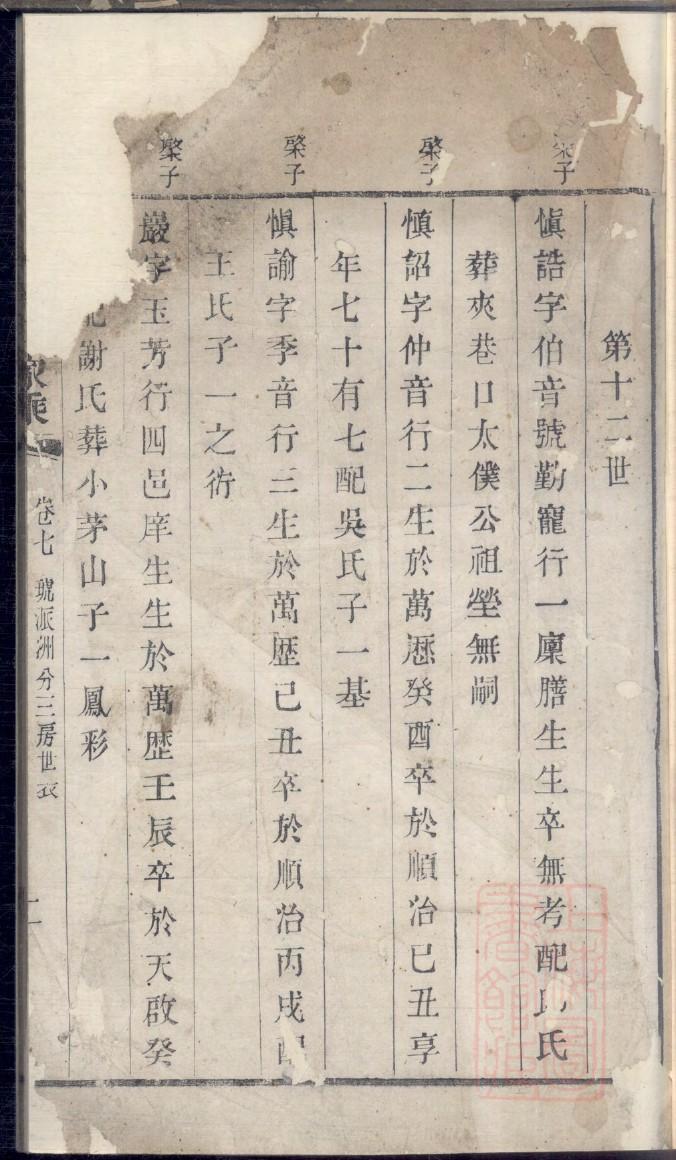 第十二世
棨子
慎誥字伯音號勤寵行一廩膳生生卒無考配氏
葬夾巷口太僕公祖塋無嗣
棨子
慎詔字仲音行二生於萬歷癸酉卒於順治己丑享
年七十有七配吳氏子一基
棨子
慎諭字季音行三生於萬歷己丑卒於順治丙戌配
王氏子一之衍
棨子
巖字玉芳行四邑庠生生於萬歷壬辰卒於天啟癸
配謝氏葬小茅山子一鳳彩
家乘
卷七 號派洲分三房世表
二